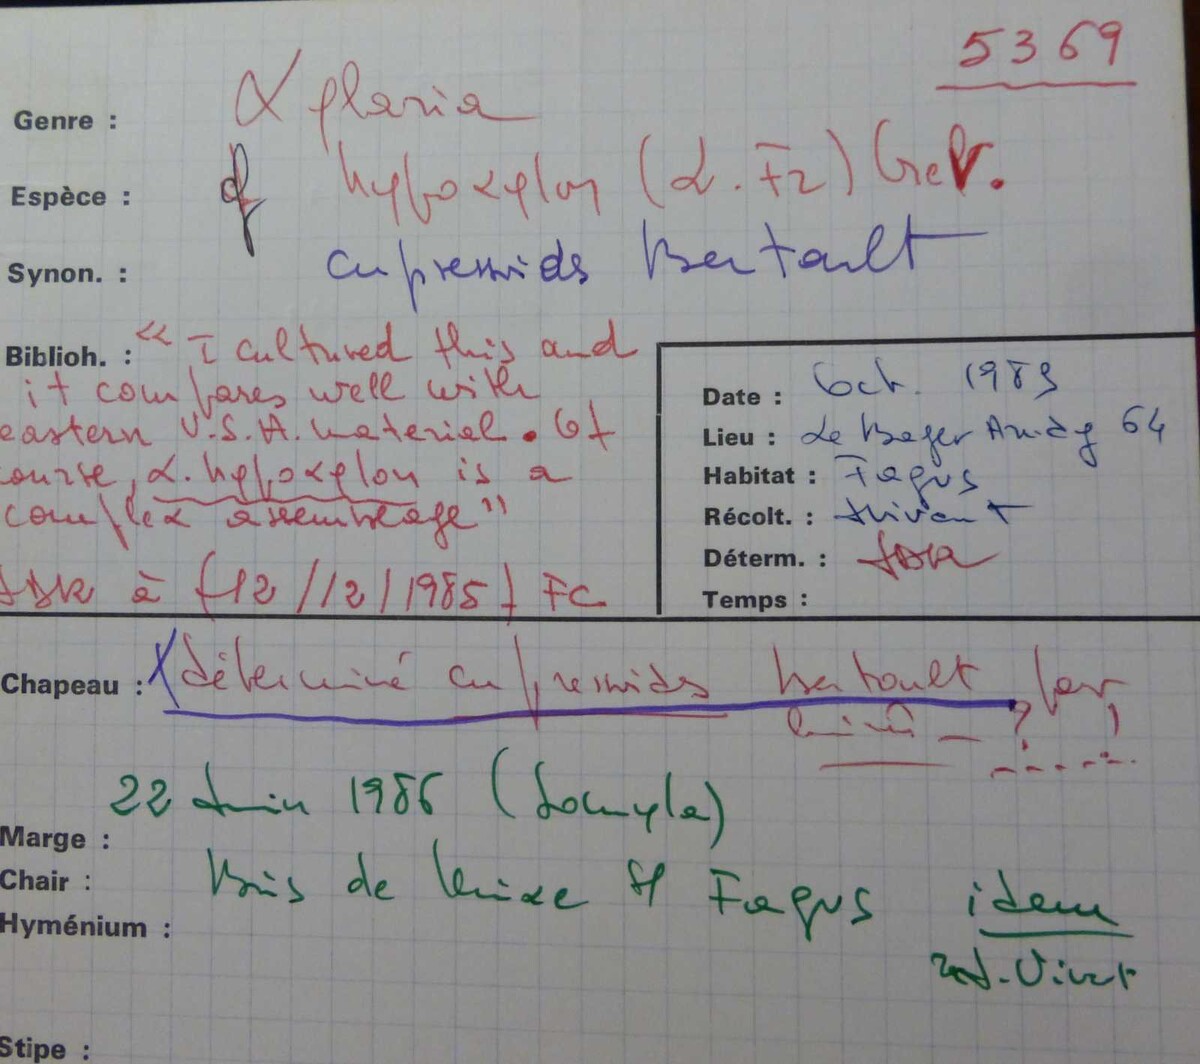 5369
Genre : Xylaria
Espèce : cf hypoxylon (L. Fr) Grev.
Synon. : cupressoïds Bertault
Biblioh. : "I cultured this and
it compares well with
eastern U.S.A. material. Of
course, X. hypoxylon is a
complex assemblage"
à (12/12/1985) FC
Date : Oct. 1983
Lieu : Le Bager 64
Habitat : Fagus
Récolt. :
Déterm. :
Temps :
Chapeau : déterminé cupressoïds bertault par
?
22 Juin 1986 (
Marge :
Chair : Bois de Fagus idem
Hyménium :
Stipe :